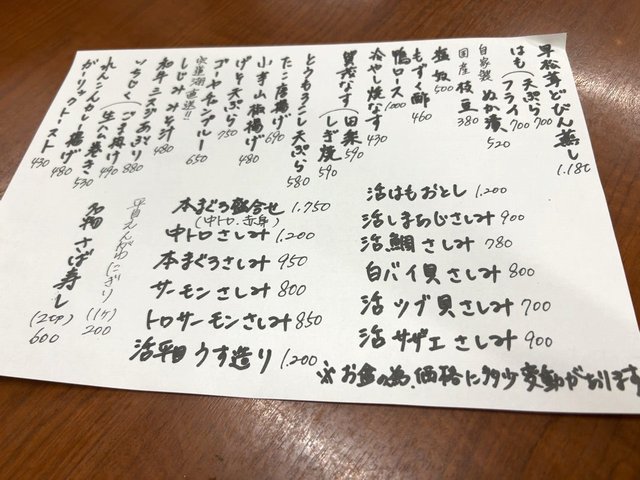 早松茸どびん蒸し 1.180
はも(天ぷら 700
フライ 700
自家製 ぬか漬 520
国産 枝豆 380
塩奴 500
もずく酢 460
鴨ロース 1000
冷やし焼なす 430
賀茂なす(田楽 590
しぎ焼 590
とうもろこし天ぷら 580
たこ唐揚げ 690
小芋山椒揚げ 480
げそ天ぷら 750
ゴーヤチャンプルー 650
直送!!
しじみみそ汁 480
和牛ニスジあぶり 880
いちじく(ごま掛け 490
生ハム巻き 530
れんこんカレー揚げ 480
ガーリックトースト 430
活はもおとし 1.200
活しまあじさしみ 900
活鯛さしみ 780
白バイ貝さしみ 800
活ツブ貝さしみ 700
活サザエさしみ 900
本まぐろ盛合せ 1.750
(中トロ.赤身)
中トロさしみ 1.200
本まぐろさしみ 950
サーモンさしみ 800
トロサーモンさしみ 850
活平目うす造り 1.200
平目えんがわにぎり (1ヶ) 200
名物 さば寿し (2切) 600
※お盆の為、価格に多少変動があります